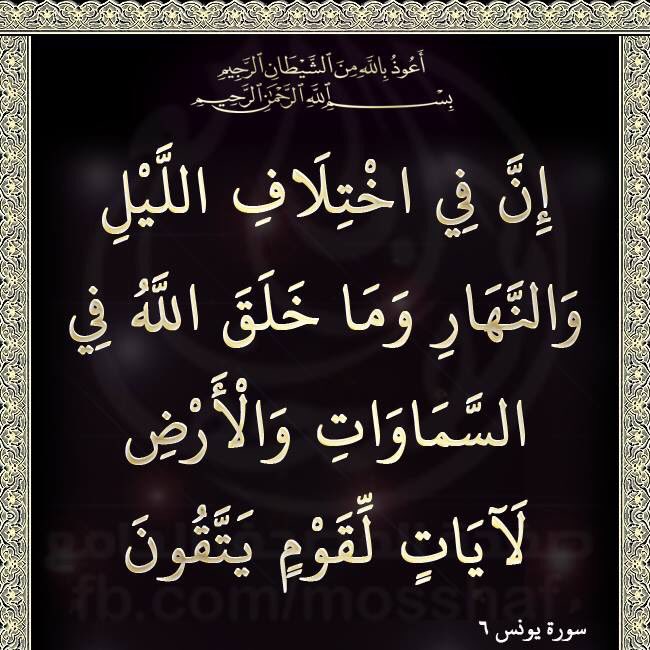 أَعُوذُ بِاللَّهِ مِنَ الشَّيْطَانِ الرَّجِيمِ
بِسْمِ اللَّهِ الرَّحْمَٰنِ الرَّحِيمِ
إِنَّ فِي اخْتِلَافِ اللَّيْلِ
وَالنَّهَارِ وَمَا خَلَقَ اللَّهُ فِي
السَّمَاوَاتِ وَالْأَرْضِ
لَآيَاتٍ لِّقَوْمٍ يَتَّقُونَ
fb.com/mosshaf
سورة يونس ٦